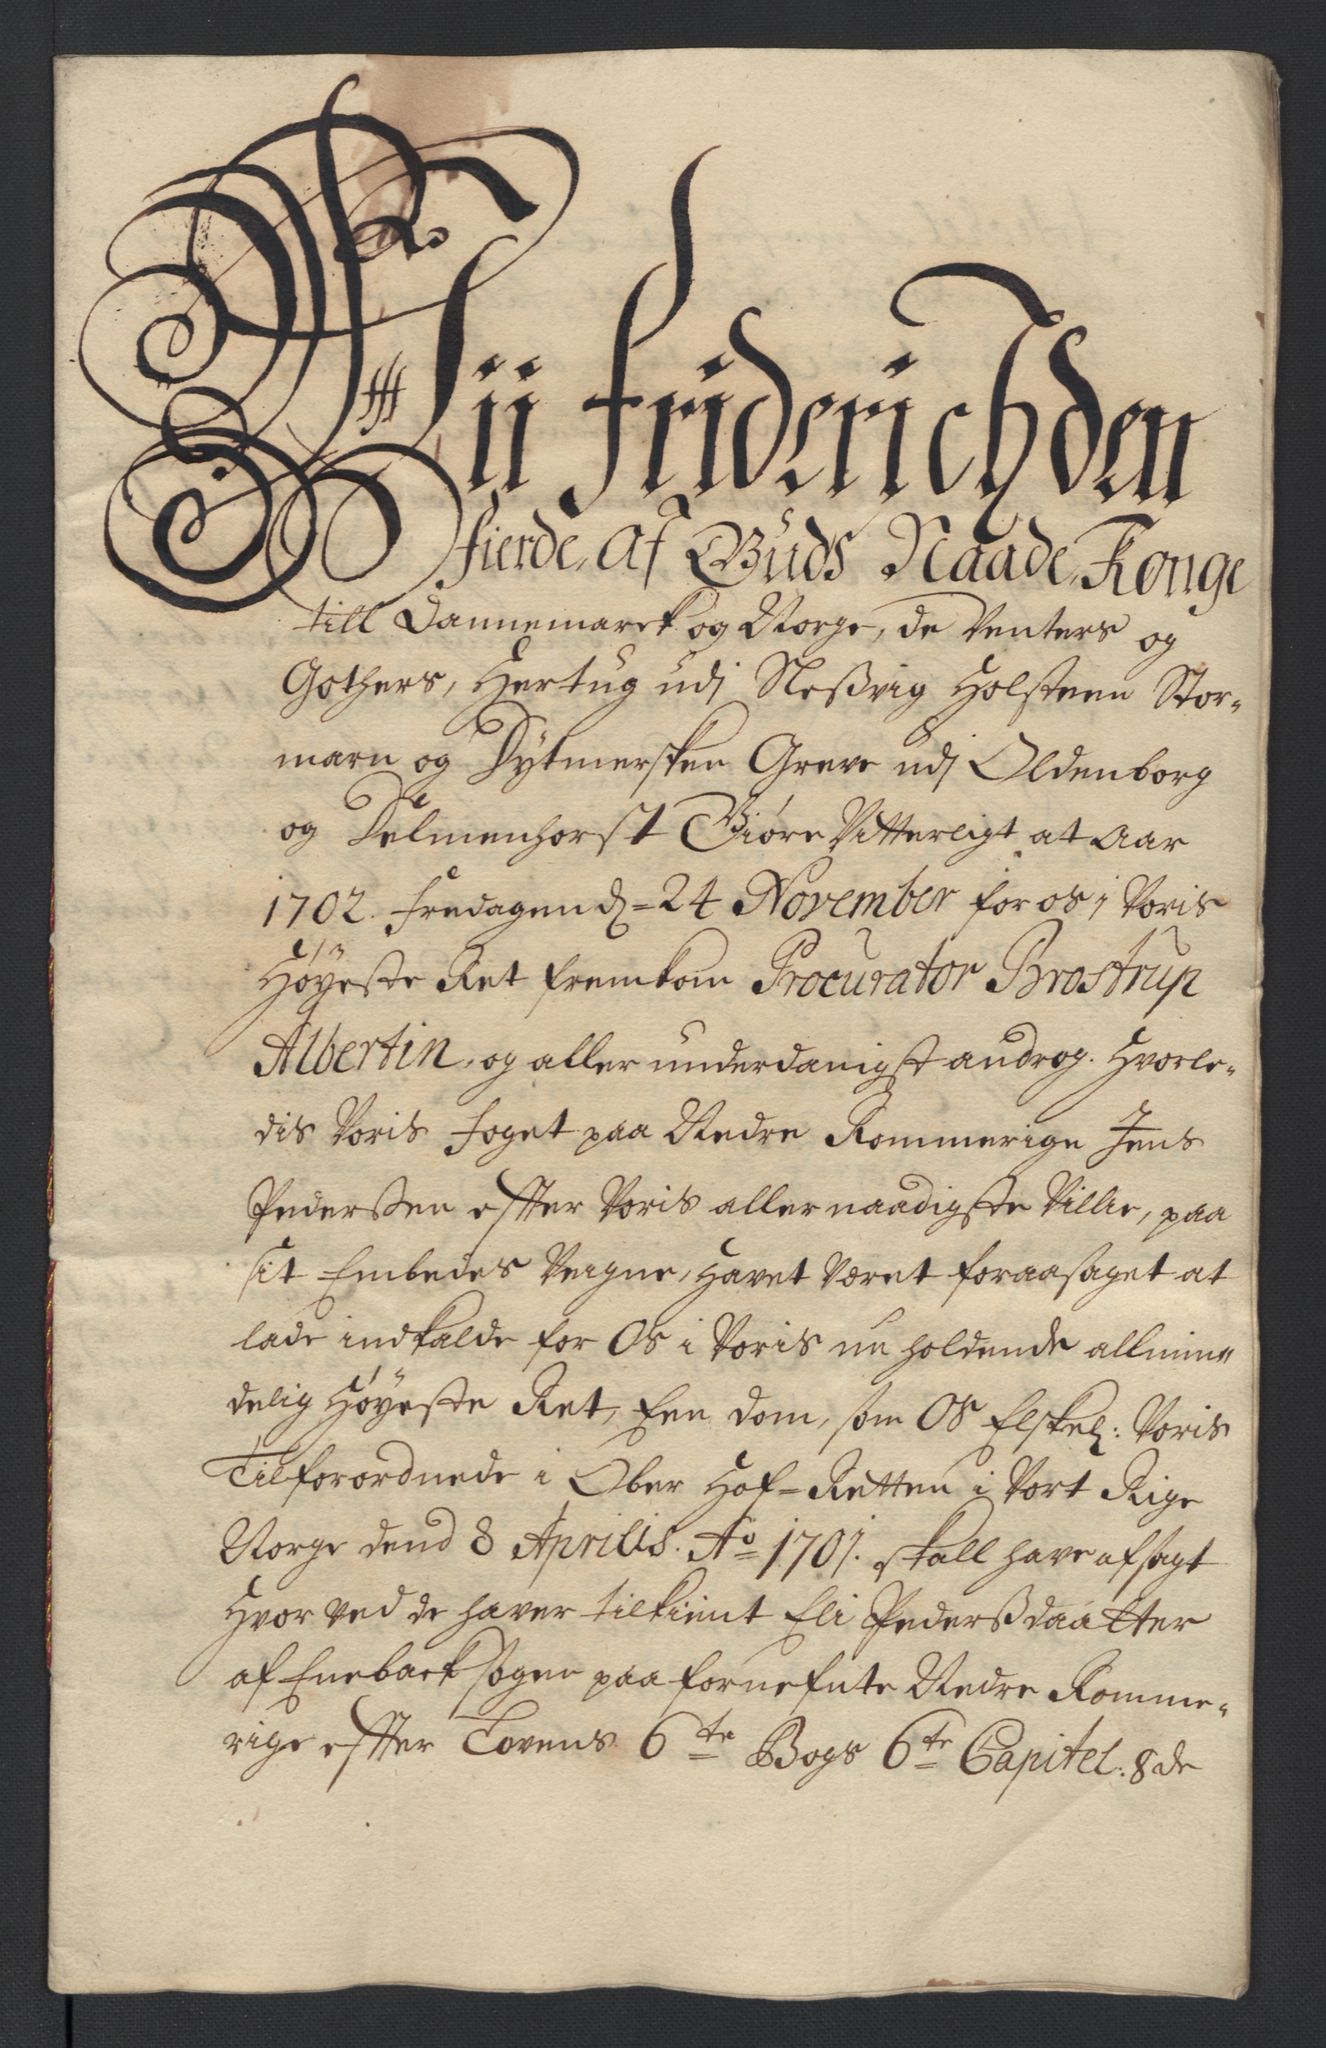 Wii friderich den
fierde, af Guds Naade, Konge
till Dannemarck og Norge, de Venters og
Gothers, Hertug udj Slesßvig Holsteen Stor-
marn og Dytmersken Greve udj Oldenborg
og Delmenhorst Giøre Vitterligt at Aar
1702. Fredagen d= 24 November for os i Voris
Høyeste Ret fremkom Procurator Brostrup
Albertin, og aller underdanigst androg. Hvorle-
dis Voris Foget paa Nedre Rommerige Jens
Pederßen efter Voris allernaadigste Villie, paa
sit Embedes Veigne, Havet Været foraasaget at
lade indkalde for Os i Voris nu holdende allmin-
delig Høyeste Ret, Een dom, som Os Elskel: Voris
Tilforordnede i Ober Hof=Retten i Vort Rige
Norge dend 8 Aprilis. Ao 1701. skall have afsagt
Hvor ved de haver tilkient Eli Pederßdaatter
af Eneback sogen paa fornefnte Nedre Romme-
rige efter Lovens 6te Bogs 6te Capitel: 8de